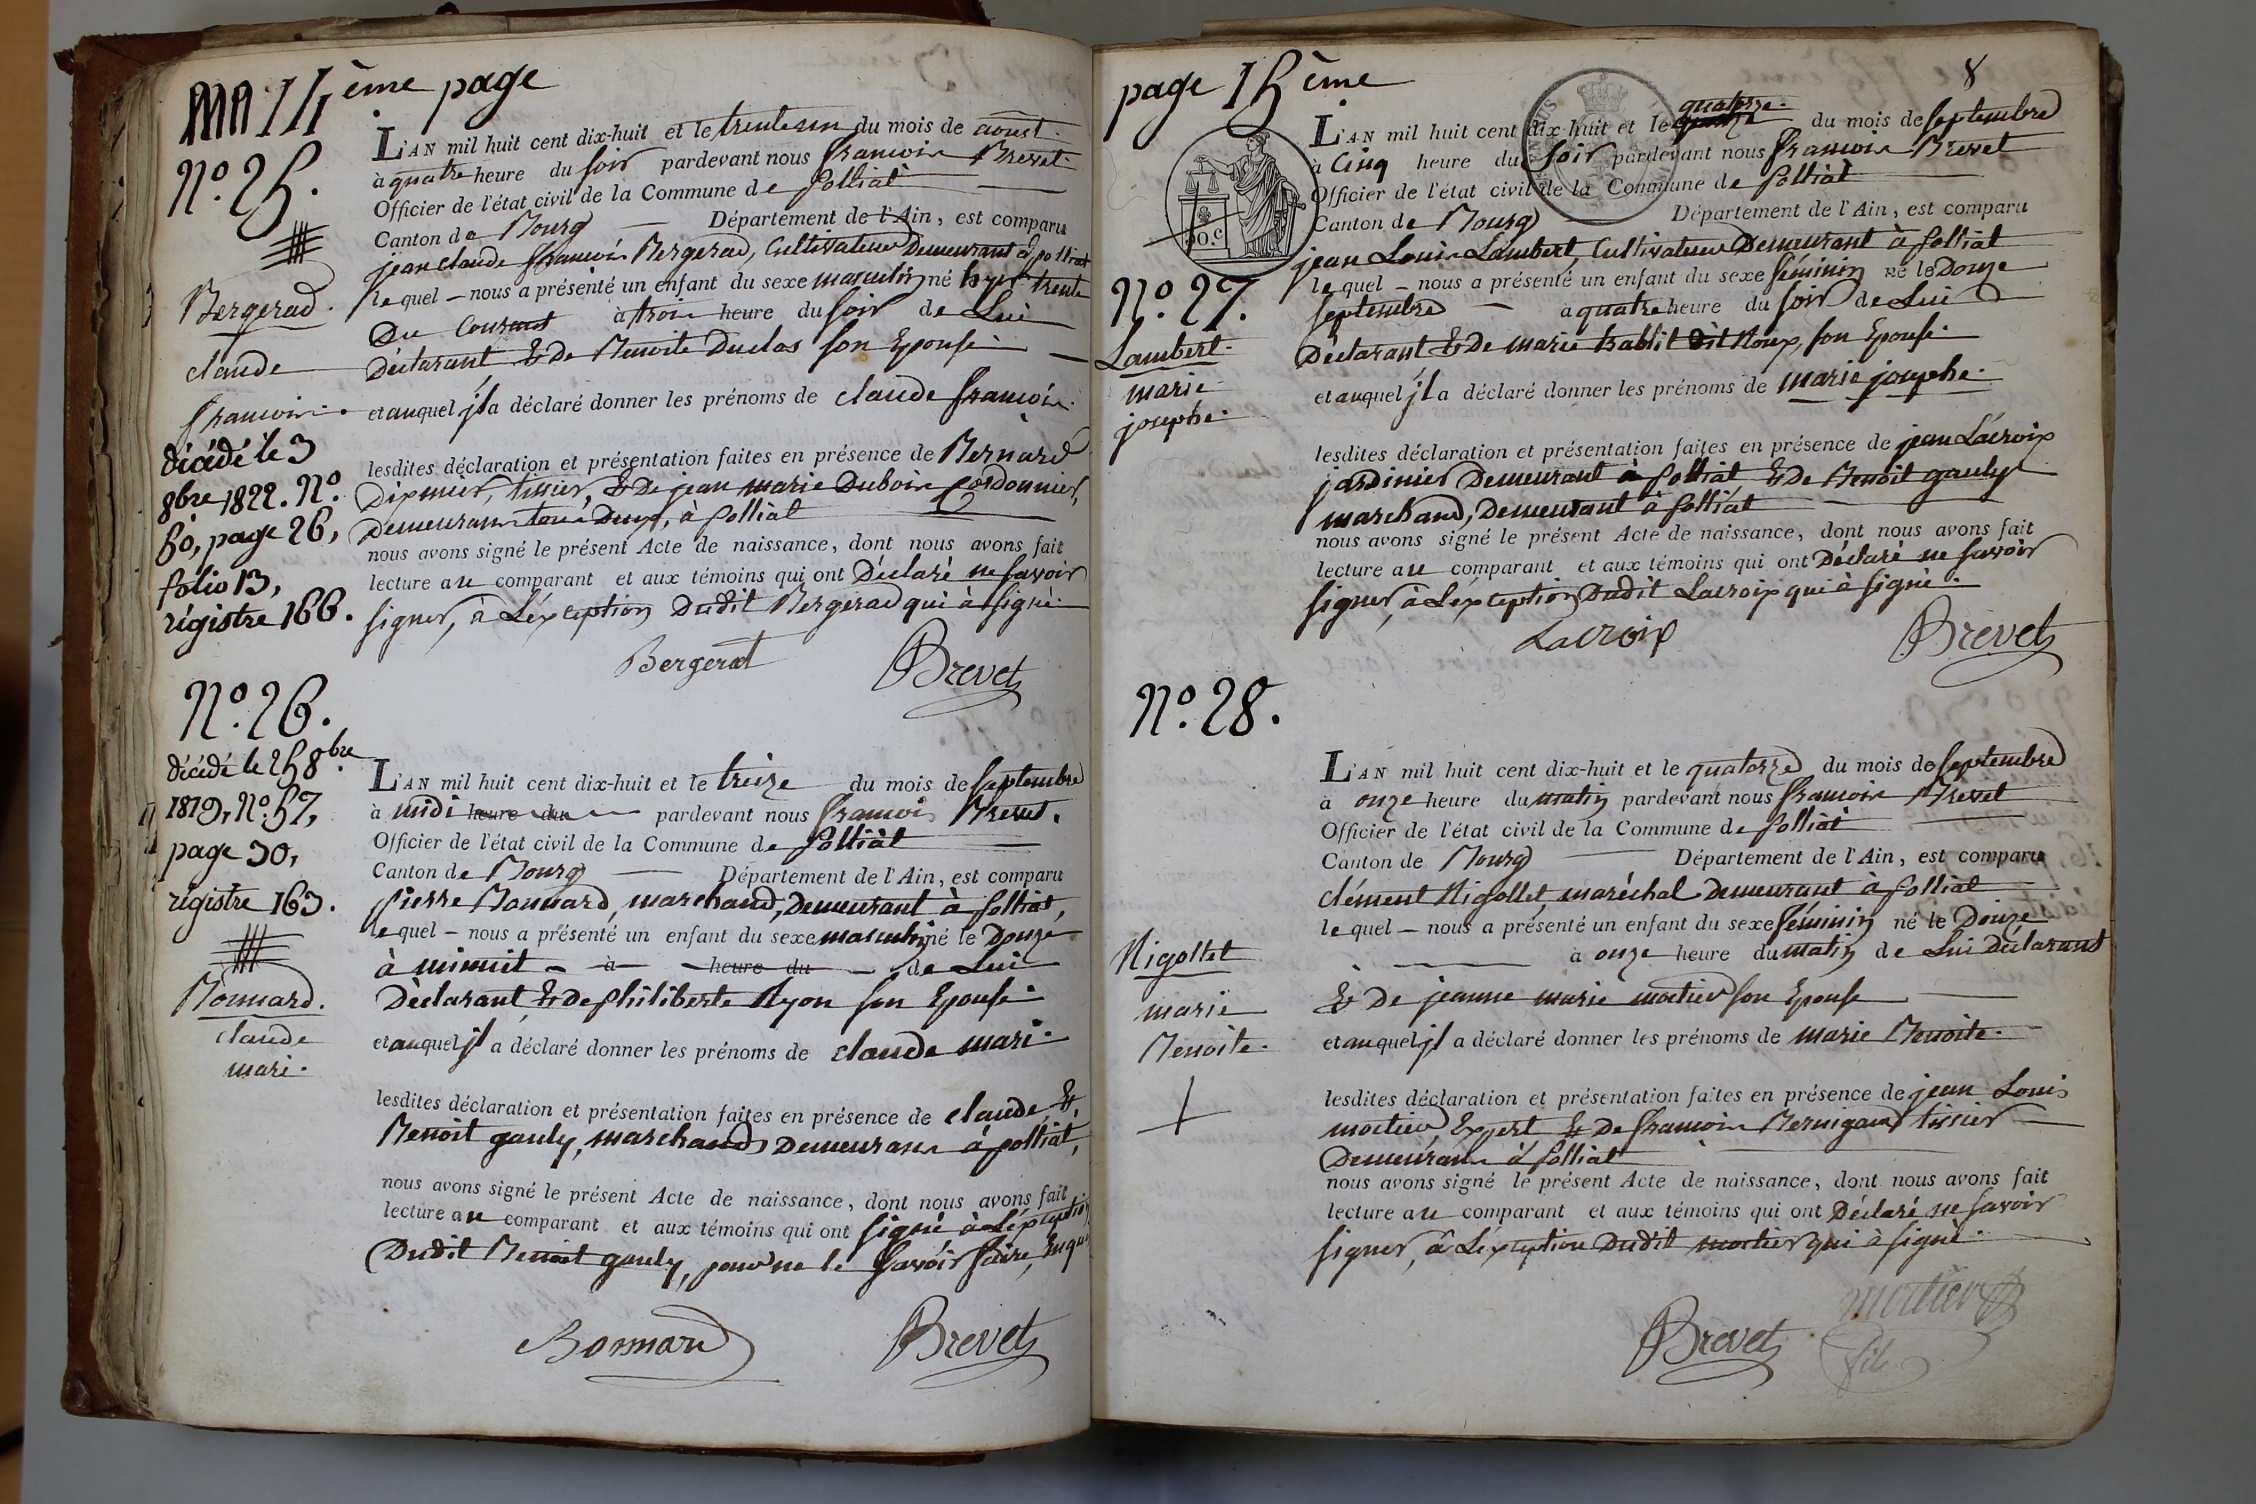 14ème page
N.º 25.
L'AN mil huit cent dix-huit et le trenteun du mois de aoust.
à quatre heure du soir pardevant nous francois Brevet.
Officier de l'état civil de la Commune de polliat
Canton de Bourg Département de l'Ain, est comparu
jean claude francois Bergerad, Cultivateur Demeurant à polliat
le quel nous a présenté un enfant du sexe masculin né hyer trente
Du Courant à trois heure du soir de Lui
Déclarant & De Benoite Duclos son Epouse.
et auquel jl a déclaré donner les prénoms de claude francois.
lesdites déclaration et présentation faites en présence de Bernard
Dixmier, tissier, & De jean marie Dubois Cordonnier,
Demeurans tous Deux, à polliat
nous avons signé le présent Acte de naissance, dont nous avons fait
lecture au comparant et aux témoins qui ont Déclaré ne savoir
signer, à L'éxception Dudit Bergerad qui à signé.
Bergerat Brevet
Bergerad.
claude
francois.
décédé le 3
8bre 1822. Nº
50, page 26,
folio 13,
régistre 166.
N.º 26.
décédé le 25 8bre
1819, Nº 57,
page 30,
régistre 163.
Bonnard.
claude
mari.
L'AN mil huit cent dix-huit et le treize du mois de septembre
à midi heure du pardevant nous francois Brevet.
Officier de l'état civil de la Commune de polliat
Canton de Bourg Département de l'Ain, est comparu
pierre Bonnard, marchand, Demeurant à polliat,
le quel nous a présenté un enfant du sexe masculin né le Douze
à minuit à heure du de Lui
Déclarant, & de philiberte Ryon son Epouse.
et auquel jl a déclaré donner les prénoms de claude mari.
lesdites déclaration et présentation faites en présence de claude &
Benoit gauly, marchands Demeurans à polliat,
nous avons signé le présent Acte de naissance, dont nous avons fait
lecture au comparant et aux témoins qui ont signé à L'éxception
Dudit Benoit gauly, pour ne le savoir faire, Enquis
Bonnard Brevet
page 15ème
8
N.º 27.
Lambert.
marie
josephe.
L'AN mil huit cent dix-huit et le quatorze. du mois de septembre
à Cinq heure du soir pardevant nous francois Brevet
Officier de l'état civil de la Commune de polliat
Canton de Bourg Département de l'Ain, est comparu
jean Louis Lambert, Cultivateur Demeurant à polliat
le quel nous a présenté un enfant du sexe féminin né le Douze
septembre à quatre heure du soir de Lui
Déclarant & De marie Rabllit dit Roux, son Epouse.
et auquel jl a déclaré donner les prénoms de marie josephe.
lesdites déclaration et présentation faites en présence de jean Lacroix
jardinier Demeurant à polliat & De Benoit gauly
marchand, Demeurant à polliat
nous avons signé le présent Acte de naissance, dont nous avons fait
lecture au comparant et aux témoins qui ont Déclaré ne savoir
signer, à L'éxception Dudit Lacroix qui à signé.
Lacroix Brevet
N.º 28.
Nigollet
marie
Benoite.
L'AN mil huit cent dix-huit et le quatorze du mois de septembre
à onze heure du matin pardevant nous francois Brevet
Officier de l'état civil de la Commune de polliat
Canton de Bourg Département de l'Ain, est comparu
clément Nigollet, maréchal Demeurant à polliat
le quel nous a présenté un enfant du sexe féminin né le Douze
à onze heure du matin de Lui Déclarant
& De jeanne marie mortier son Epouse
et auquel jl a déclaré donner les prénoms de marie Benoite.
lesdites déclaration et présentation faites en présence de jean Louis
mortier, Expert & De francois Bernigaud tissier
Demeurans à polliat
nous avons signé le présent Acte de naissance, dont nous avons fait
lecture au comparant et aux témoins qui ont Déclaré ne savoir
signer, à L'éxception Dudit mortier qui à signé.
Brevet mortier
fils